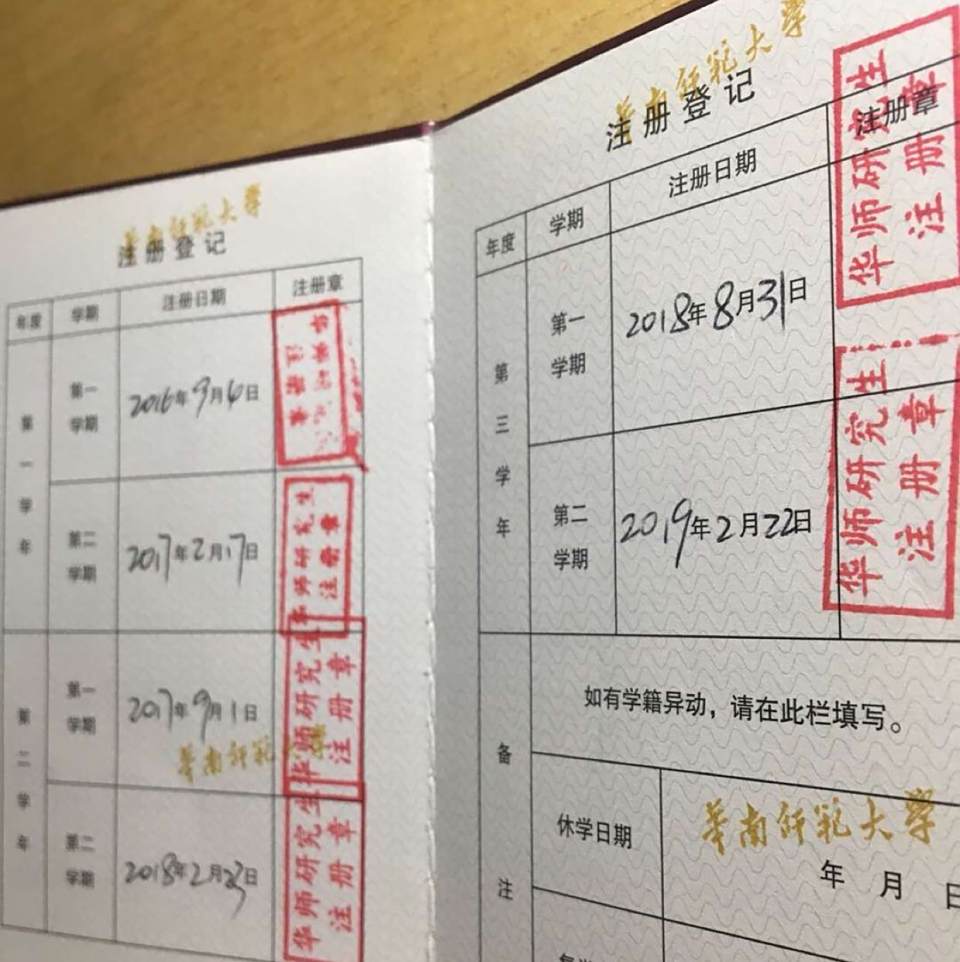 華南師範大學
注册登记
年度 学期 注册日期 注册章
第一学年 第一学期 2016年9月6日
第二学期 2017年2月17日 华师研究生注册章
第二学年 第一学期 2017年9月1日 华师研究生注册章
華南師範
第二学期 2018年2月23日 华师研究生注册章
華南師範大學
注册登记
年度 学期 注册日期 注册章
第三学年 第一学期 2018年8月31日 华师研究生注册章
第二学期 2019年2月22日 华师研究生注册章
备注 如有学籍异动，请在此栏填写。
華南師範大學
休学日期 年 月 日